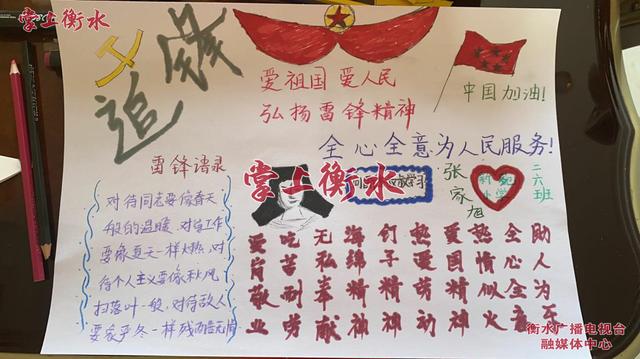 掌上衡水
追锋
爱祖国 爱人民
弘扬雷锋精神
中国加油!
全心全意为人民服务!
雷锋语录
掌上衡水
张家旭
小学
二六班
对待同志要像春天
般的温暖,对待工作
要像夏天一样火热,对
待个人主义要像秋风
扫落叶一般,对待敌人
要像严冬一样残酷无情
爱岗敬业
吃苦耐劳
无私奉献
海绵精神
钉子精神
热爱劳动
爱国精神
热情似火
全心全意
助人为乐
衡水广播电视台
融媒体中心